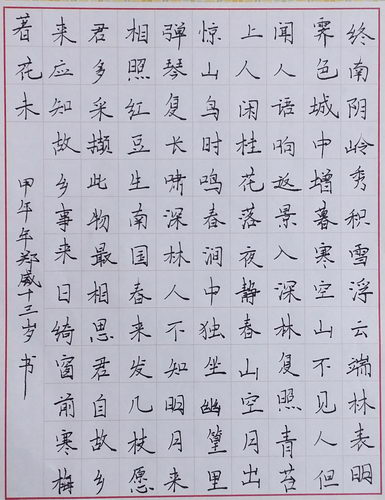 终南阴岭秀积雪浮云端林表明
霁色城中增暮寒空山不见人但
闻人语响返景入深林复照青苔
上人闲桂花落夜静春山空月出
惊山鸟时鸣春涧中独坐幽篁里
弹琴复长啸深林人不知明月来
相照红豆生南国春来发几枝愿
君多采撷此物最相思君自故乡
来应知故乡事来日绮窗前寒梅
著花未
甲午年郑威十三岁书